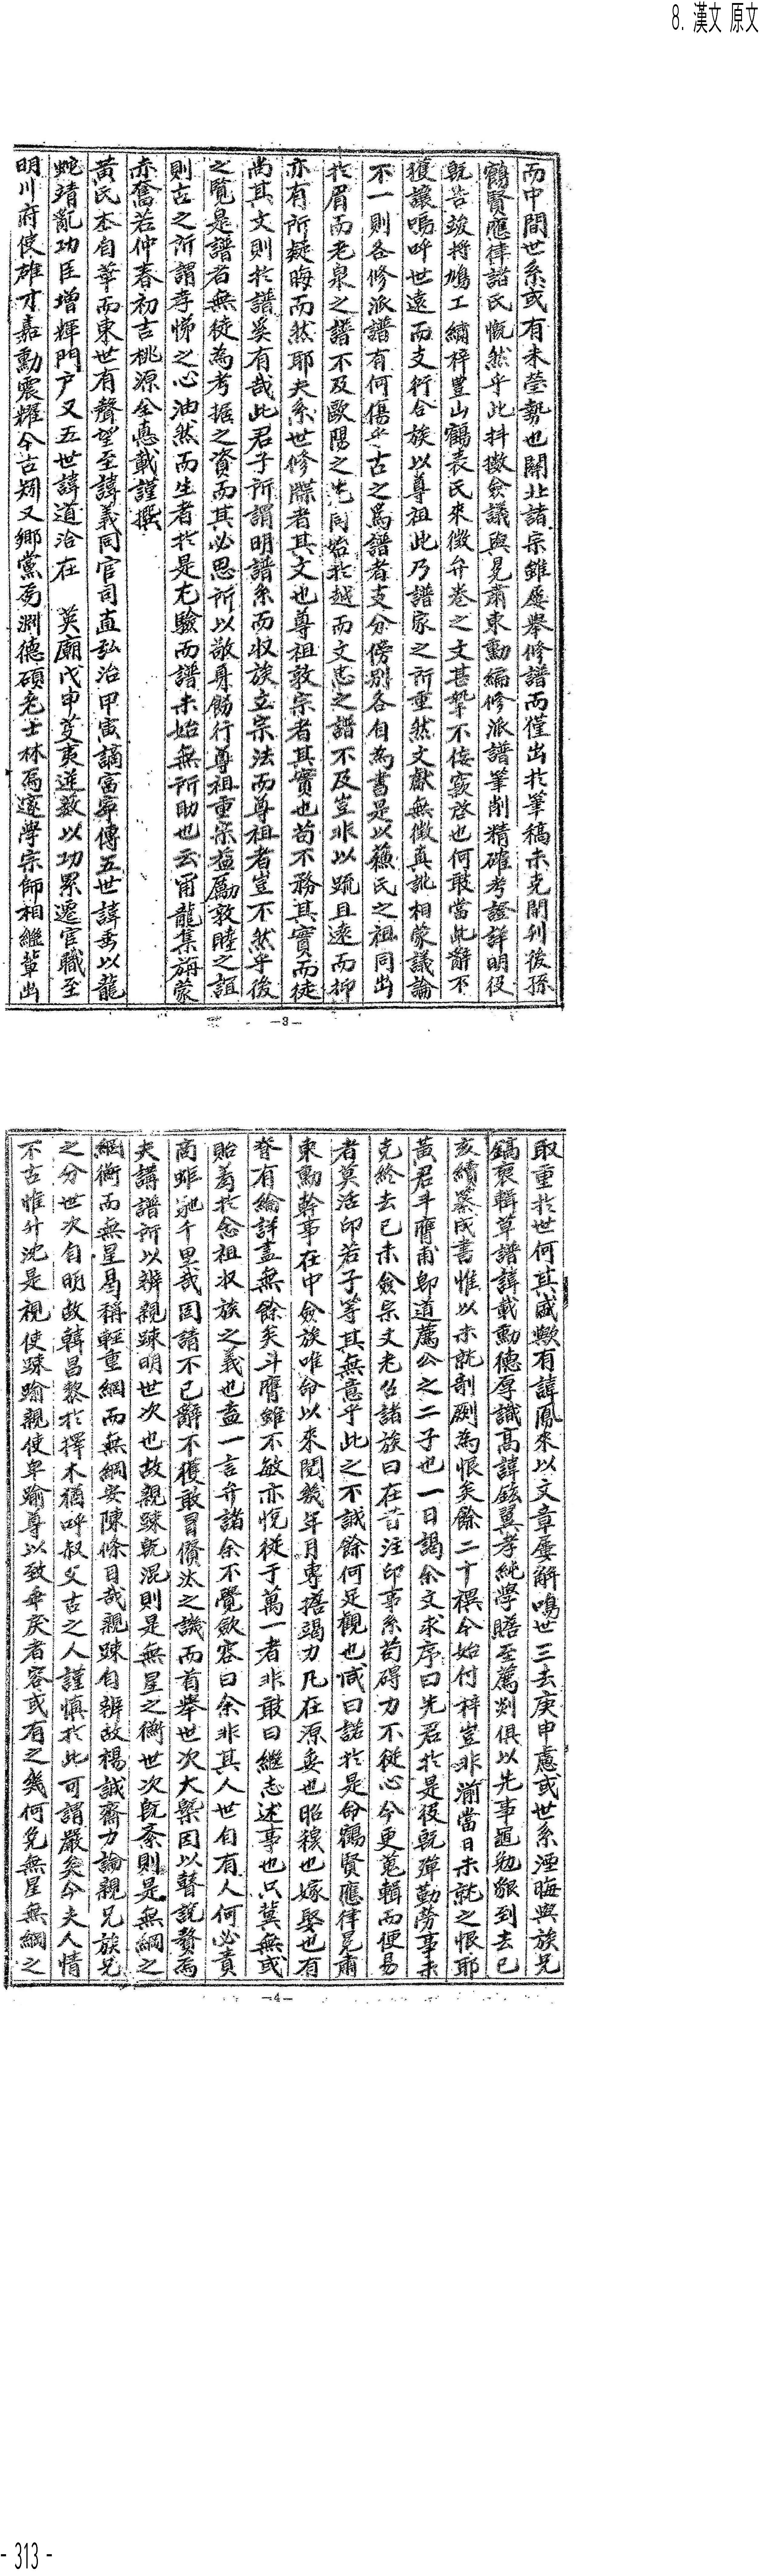 8. 漢文 原文
而中間世系或有未瑩勢也關北諸宗雖屢舉修譜而僅出於筆稿未克開刊後孫
鶴賢應律諸氏慨然乎此抖擻僉議與晃肅東勳編修派譜筆削精確考證詳明役
旣告竣將鳩工繡梓豊山鶴表氏來徵弁卷之文甚摯不佞窾啓也何敢當此辭不
獲讓嗚呼世遠而支衍合族以尊祖此乃譜家之所重然文獻無徵真訛相蒙議論
不一則各修派譜有何傷乎古之爲譜者支分傍別各自為書是以蘇氏之祖同出
於眉而老泉之譜不及歐陽之先同始於越而文忠之譜不及豈非以疏且遠而抑
亦有所疑晦而然耶夫系世修牒者其文也尊祖敦宗者其實也苟不務其實而徒
尚其文則於譜奚有哉此君子所謂明譜系而收族立宗法而尊祖者豈不然乎後
之覽是譜者無徒為考据之資而其必思所以敬身飭行尊祖重宗益勵敦睦之誼
則古之所謂孝悌之心油然而生者於是尤驗而譜未始無所助也云甯龍集旃蒙
赤奮若仲春初吉桃源全憙載謹撰
黃氏本自華而東世有聲望至諱義同官司直弘治甲寅謫富寧傳五世諱秀以龍
蛇靖亂功臣增輝門戶又五世諱道洽在 英廟戊申芟夷逆數以功累遷官職至
明川府使雄才嘉勳震耀今古矧又鄉黨爲淵德碩老士林爲邃學宗師相繼輩出
-3-
取重於世何其盛歟有諱鳳來以文章屢解鳴世三去庚申慮或世系湮晦與族兄
鎬褒輯草譜諱載勳德厚識高諱鉉翼孝純學贍至薦剡俱以先事黽勉繇到去己
亥續纂成書惟以未就剞劂為恨矣餘二十禩今始付梓豈非湔當日未就之恨耶
黃君斗膺甫卽道薦公之二子也一日謁余文求序曰先君於是役旣殫勤勞事未
克終去己未僉宗丈老召諸族曰在昔注印事系苟碍力不從心今更蒐輯而便易
者莫活印若子等其無意乎此之不誠餘何足觀也咸曰諾於是命鶴賢應律晃肅
東勳幹事在中僉族唯命以來閱幾年月專搭竭力凡在源委也昭穆也嫁娶也有
脊有綸詳盡無餘矣斗膺雖不敏亦悅從于萬一者非敢曰繼志述事也只冀無或
貽羞於念祖收族之義也盍一言弁諸余不覺歛容曰余非其人世自有人何必責
商蚷馳千里哉固請不已辭不獲敢冒僭汰之譏而首舉世次大槩因以瞽說贅焉
夫講譜所以辨親踈明世次也故親踈旣混則是無星之衡世次旣紊則是無綱之
網衡而無星曷稱輕重網而無綱安陳條目哉親踈自辨故楊誠齋力論親兄族兄
之分世次自明故韓昌黎於擇木猶呼叔父古之人謹慎於此可謂嚴矣今夫人情
不古惟升沈是視使踈踰親使卑踰尊以致乖戾者容或有之幾何免無星無綱之
-4-
- 313 -